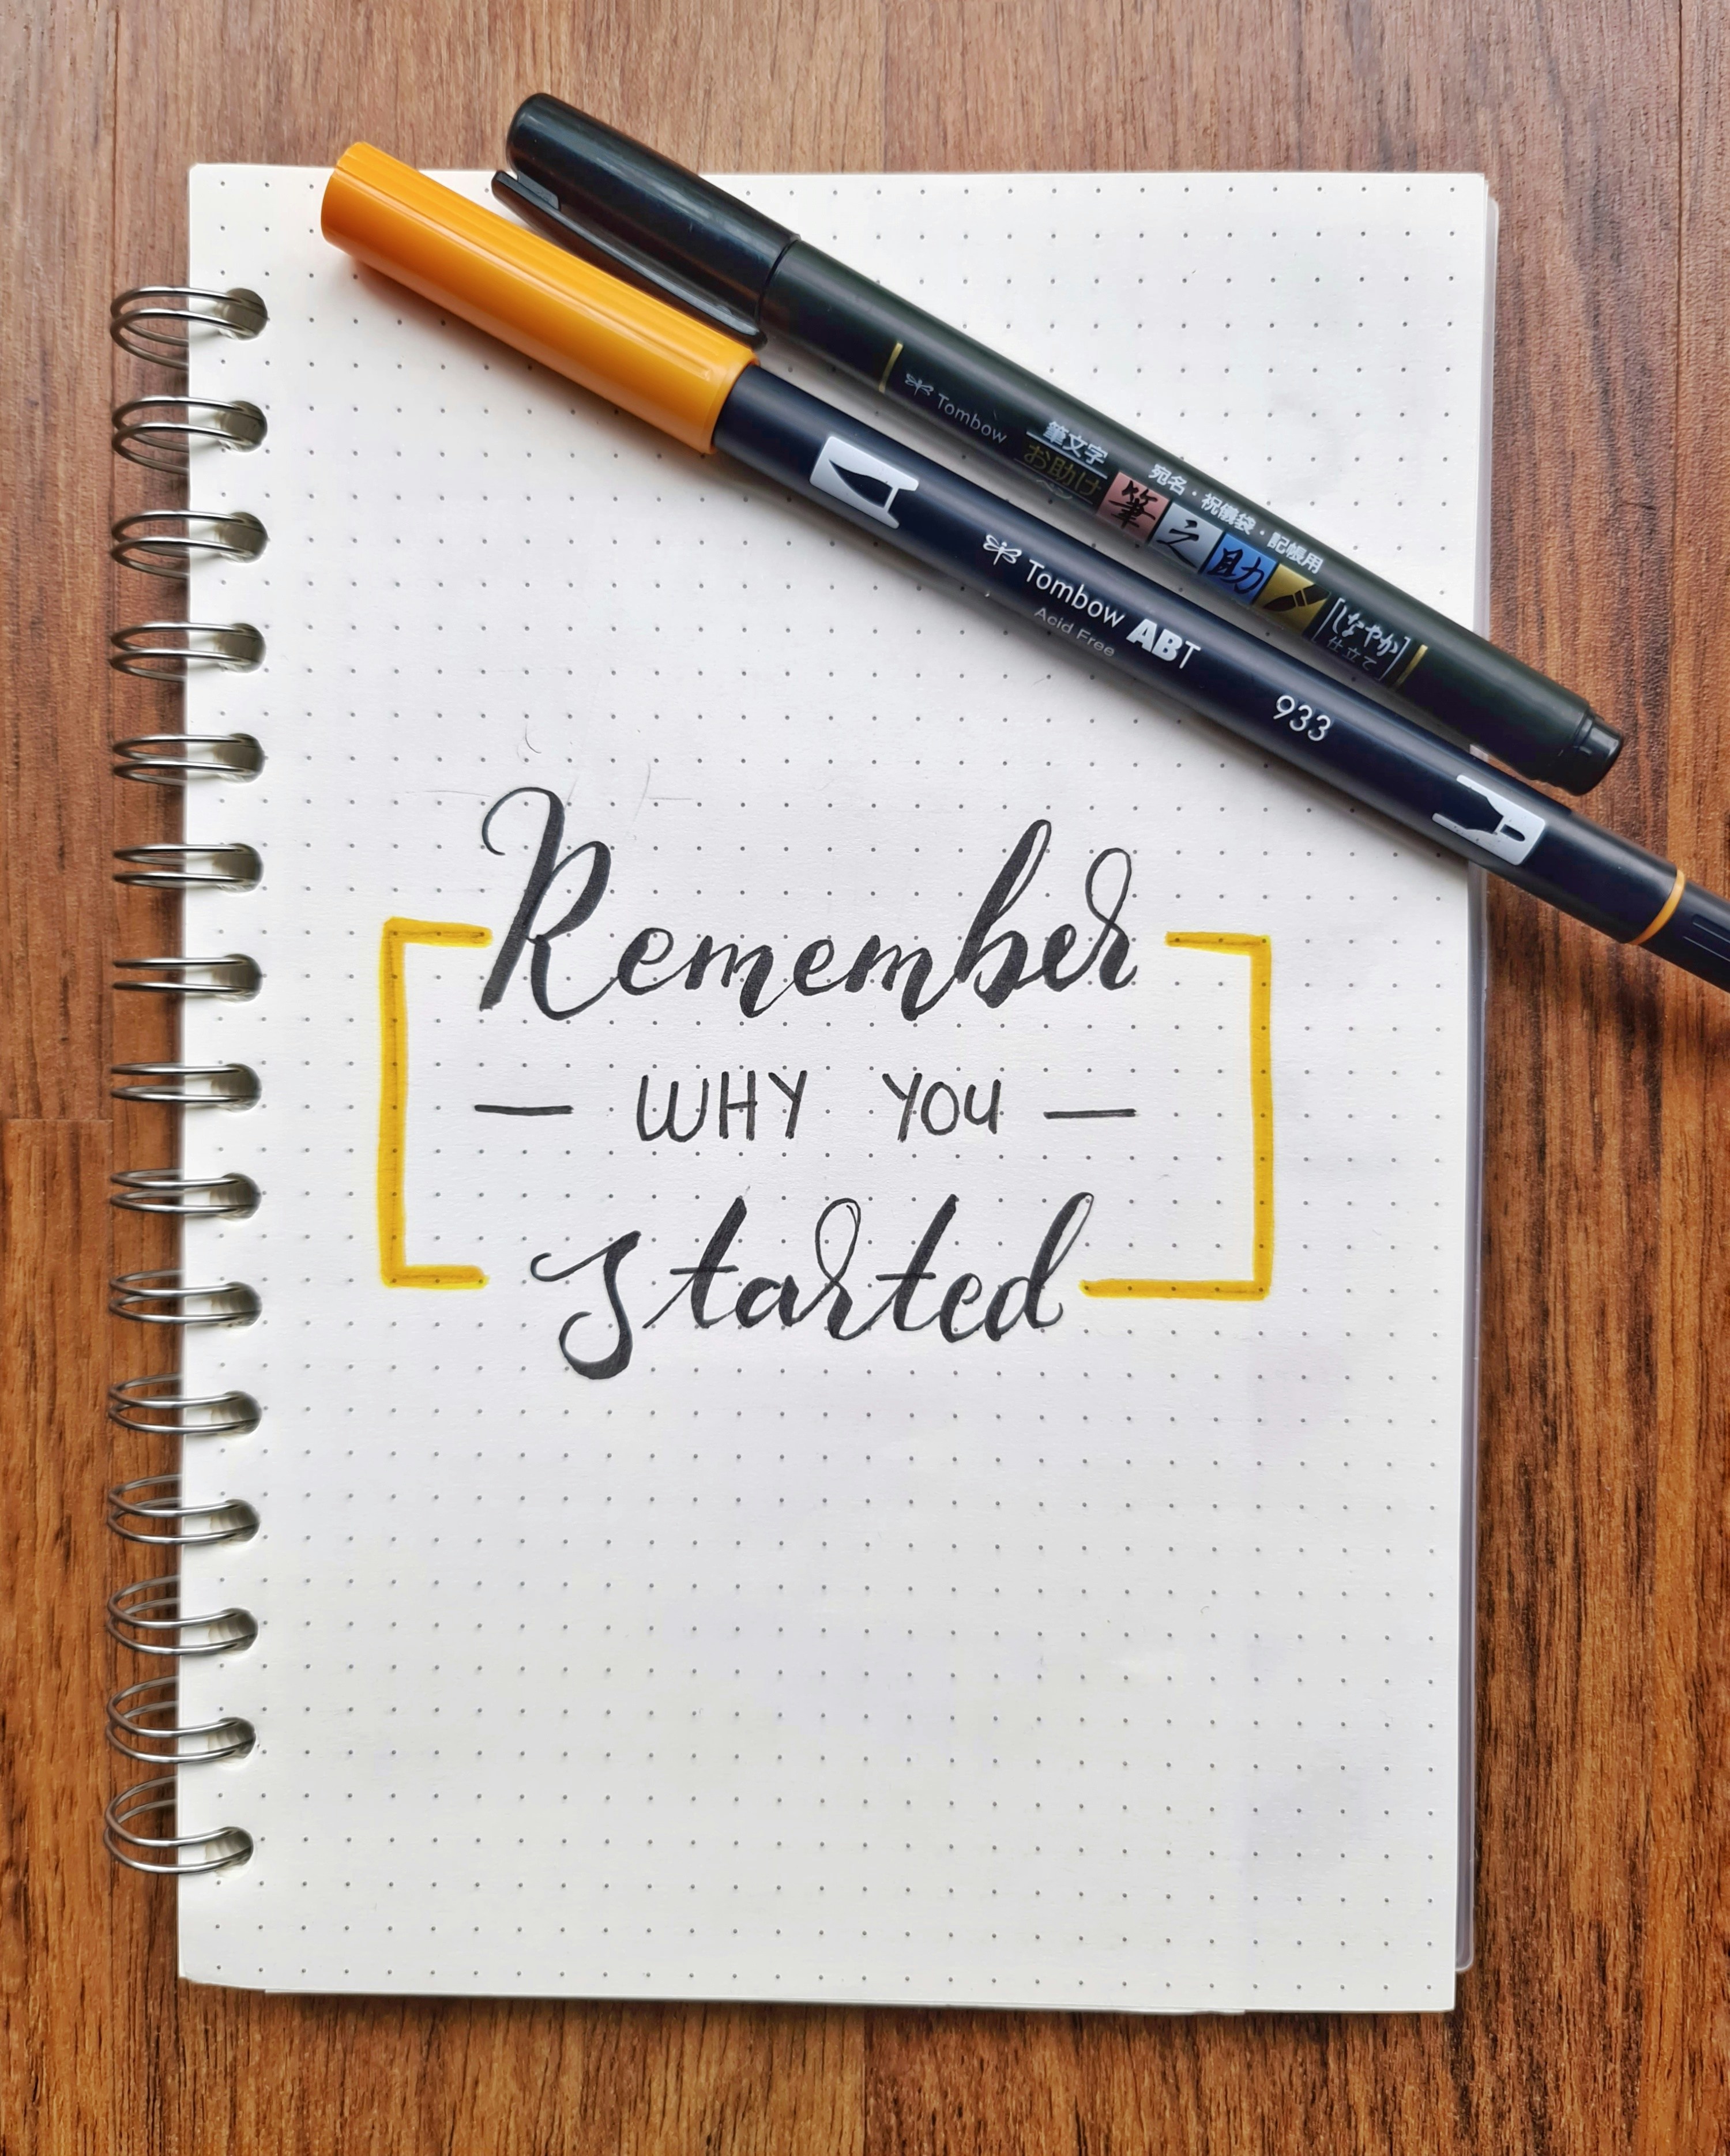 Tombow
筆文字
お助け
宛名・祝儀袋・記帳用
筆之助
[しなやか]
仕立て
Tombow ABT
Acid Free
933
Remember
— WHY YOU —
started